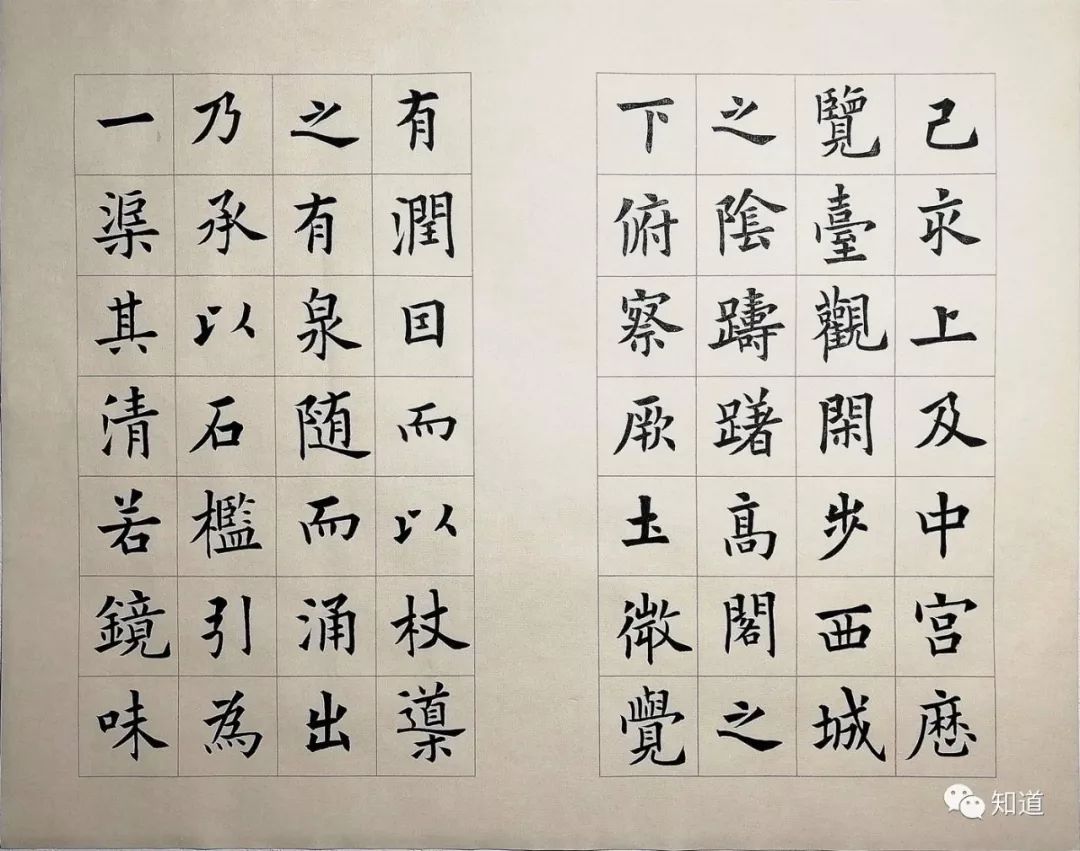 己亥上及中宫歷
覽臺觀閑步西城
之陰躊躇高閣之
下俯察厥土微覺
有潤因而以杖導
之有泉随而涌出
乃承以石檻引為
一渠其清若鏡味
知道